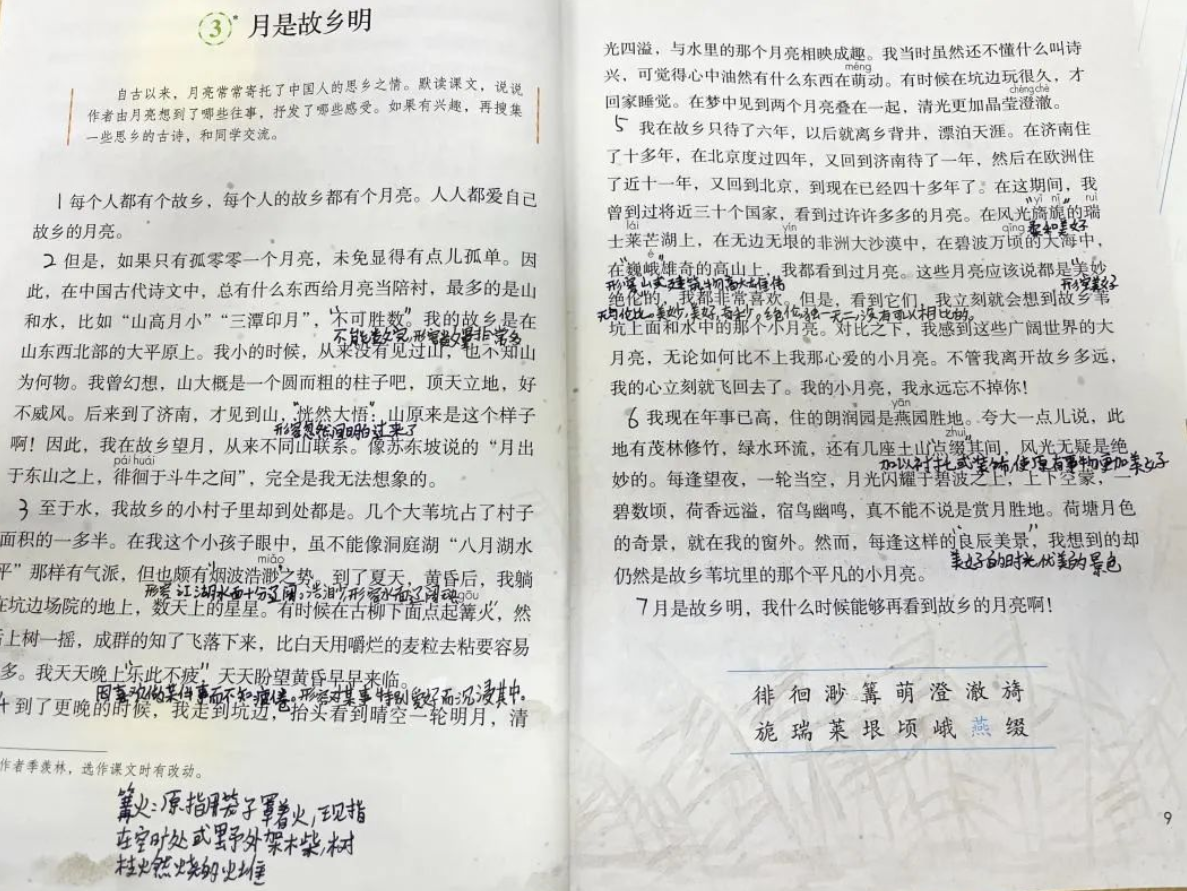 3* 月是故乡明
自古以来，月亮常常寄托了中国人的思乡之情。默读课文，说说
作者由月亮想到了哪些往事，抒发了哪些感受。如果有兴趣，再搜集
一些思乡的古诗，和同学交流。
1 每个人都有个故乡，每个人的故乡都有个月亮。人人都爱自己
故乡的月亮。
2 但是，如果只有孤零零一个月亮，未免显得有点儿孤单。因
此，在中国古代诗文中，总有什么东西给月亮当陪衬，最多的是山
和水，比如“山高月小”“三潭印月”，“不可胜数”。我的故乡是在
不能数完,形容数量非常多
山东西北部的大平原上。我小的时候，从来没有见过山，也不知山
为何物。我曾幻想，山大概是一个圆而粗的柱子吧，顶天立地，好
不威风。后来到了济南，才见到山，“恍然大悟”：山原来是这个样子
形容忽然间明白过来了
啊！因此，我在故乡望月，从来不同山联系。像苏东坡说的“月出
pái huái
于东山之上，徘徊于斗牛之间”，完全是我无法想象的。
3 至于水，我故乡的小村子里却到处都是。几个大苇坑占了村子
面积的一多半。在我这个小孩子眼中，虽不能像洞庭湖“八月湖水
miǎo
平”那样有气派，但也颇有“烟波浩渺”之势。到了夏天，黄昏后，我躺
形容江湖水面十分辽阔;浩渺,形容水面辽阔
gōu
在坑边场院的地上，数天上的星星。有时候在古柳下面点起篝火，然
后上树一摇，成群的知了飞落下来，比白天用嚼烂的麦粒去粘要容易
多。我天天晚上“乐此不疲”，天天盼望黄昏早早来临。
因喜欢做某件事而不知疲倦。形容对某事特别爱好而沉浸其中。
4 到了更晚的时候，我走到坑边，抬头看到晴空一轮明月，清
作者季羡林，选作课文时有改动。
篝火：原指用笼子罩着火,现指
在空旷处或野外架木柴,树
枝火然烧的火堆
光四溢，与水里的那个月亮相映成趣。我当时虽然还不懂什么叫诗
méng
兴，可觉得心中油然有什么东西在萌动。有时候在坑边玩很久，才
chéng chè
回家睡觉。在梦中见到两个月亮叠在一起，清光更加晶莹澄澈。
5 我在故乡只待了六年，以后就离乡背井，漂泊天涯。在济南住
了十多年，在北京度过四年，又回到济南待了一年，然后在欧洲住
了近十一年，又回到北京，到现在已经四十多年了。在这期间，我
yǐ nǐ ruì
曾到过将近三十个国家，看到过许许多多的月亮。在风光“旖旎”的瑞
lái yín qǐng 柔和美好
士莱芒湖上，在无边无垠的非洲大沙漠中，在碧波万顷的大海中，
é
在“巍峨”雄奇的高山上，我都看到过月亮。这些月亮应该说都是“美妙
形容山或建筑物高大雄伟 形容美好
绝伦”的，我都非常喜欢。但是，看到它们，我立刻就会想到故乡苇
无与伦比。美妙,美好,奇妙。绝伦,独一无二,没有可以相比的。
坑上面和水中的那个小月亮。对比之下，我感到这些广阔世界的大
月亮，无论如何比不上我那心爱的小月亮。不管我离开故乡多远，
我的心立刻就飞回去了。我的小月亮，我永远忘不掉你！
yān
6 我现在年事已高，住的朗润园是燕园胜地。夸大一点儿说，此
zhuì
地有茂林修竹，绿水环流，还有几座土山“点缀”其间，风光无疑是绝
加以衬托或装饰,使原有事物更加美好
妙的。每逢望夜，一轮当空，月光闪耀于碧波之上，上下空蒙，一
碧数顷，荷香远溢，宿鸟幽鸣，真不能不说是赏月胜地。荷塘月色
的奇景，就在我的窗外。然而，每逢这样的“良辰美景”，我想到的却
美好的时光,优美的景色
仍然是故乡苇坑里的那个平凡的小月亮。
7 月是故乡明，我什么时候能够再看到故乡的月亮啊！
徘 徊 渺 篝 萌 澄 澈 旖
旎 瑞 莱 垠 顷 峨 燕 缀
9